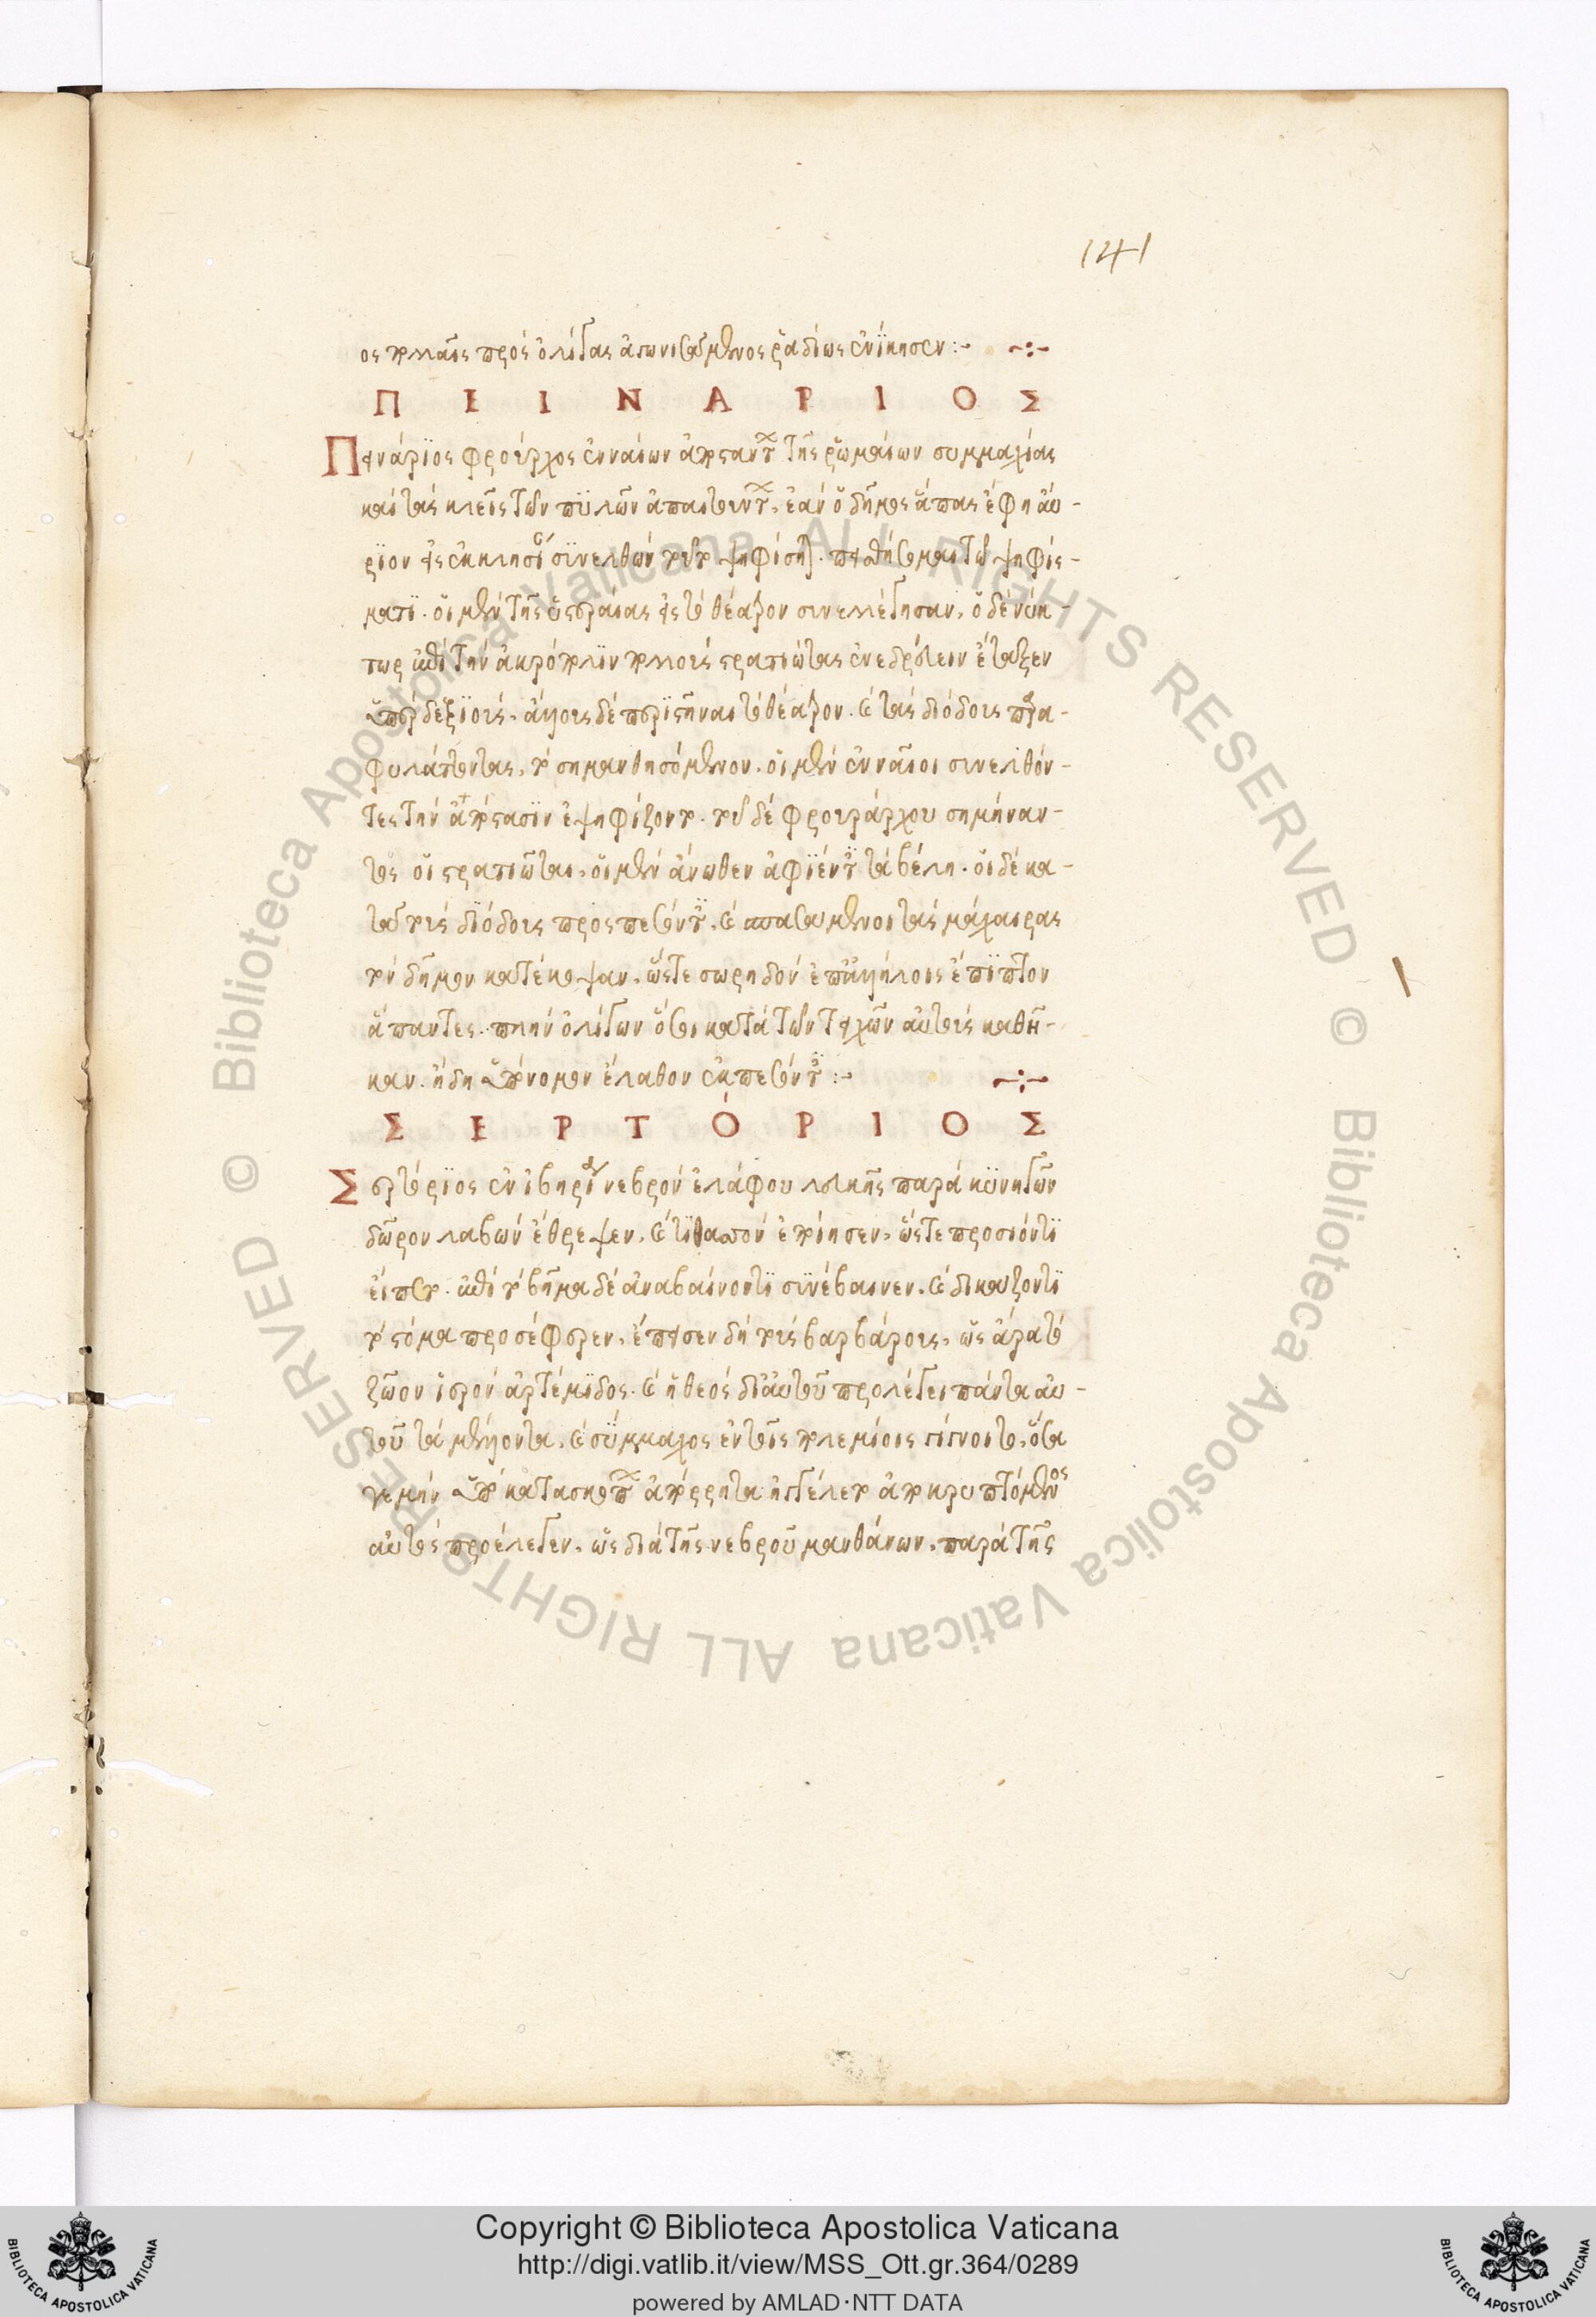 141
ος πολλοῖς πρὸς ὀλίγας ἀγωνισάμενος ῥαδίως ἐνίκησεν :-
ΠΕΙΝΑΡΙΟΣ
Πεινάριος φρούραρχος ἐνναίων ἀποστάντων τῆς ῥωμαίων συμμαχίας
καὶ τὰς κλεῖς τῶν πυλῶν ἀπαιτούντων, ἐὰν ὁ δῆμος ἅπας ἔφη αὔ-
ριον εἰς ἐκκλησίαν συνελθὼν τοῦτο ψηφίσηται. πεισθήσομαι τῷ ψηφίς-
ματι. οἱ μὲν τῆς ὑστεραίας εἰς τὸ θέατρον συνελέγησαν, ὁ δὲ νύκ-
τωρ ἐπὶ τὴν ἀκρόπολιν πολλοὺς στρατιώτας ἐνεδρεύειν ἔταξεν
ὑπερδεξίους, ἄλλους δὲ περιστῆναι τὸ θέατρον. καὶ τὰς διόδους παρα-
φυλάττοντας, τὸ σημανθησόμενον. οἱ μὲν ἐνναῖοι συνελθόν-
τες τὴν ἀπόστασιν ἐψηφίζοντο. τοῦ δὲ φρουράρχου σημήναν-
τος οἱ στρατιῶται, οἱ μὲν ἄνωθεν ἀφιέντες τὰ βέλη. οἱ δὲ κα-
τὰ τοὺς διόδους προσπεσόντες, καὶ σπασάμενοι τὰς μάχαιρας
τὸν δῆμον κατέκοψαν, ὥστε σωρηδὸν ἐπ' ἀλλήλοις ἔπιπτον
ἅπαντες. πλὴν ὀλίγων ὅσοι κατὰ τῶν τειχῶν αὐτοὺς καθῆ-
καν. ἤδη ὑπόνομον ἔλαθον ἐκπεσόντες :-
ΣΕΡΤΌΡΙΟΣ
Σερτόριος ἐν ἰβηρίᾳ νεβρὸν ἐλάφου λευκῆς παρὰ κυνηγῶν
δῶρον λαβὼν ἔθρεψεν, καὶ τιθασὸν ἐποίησεν, ὥστε προσιόντι
εἵπετο. ἐπὶ τὸ βῆμα δὲ ἀναβαίνοντι συνέβαινεν. καὶ δικάζοντι
τὸ στόμα προσέφερεν, ἔπεισεν δὴ τοὺς βαρβάρους, ὡς ἄρα τὸ
ζῶον ἱερὸν ἀρτέμιδος. καὶ ἡ θεὸς δι' αὐτοῦ προλέγει πάντα αὐ-
τοῦ τὰ μέλλοντα. καὶ σύμμαχος ἐν τοῖς πολεμίοις γίγνοιτο, ὅσα
γε μὴν ὑπὸ κατασκόπων ἀπόρρητα ἠγγέλετο ἀποκρυπτόμενος
αὐτὸς προέλεγεν, ὡς διὰ τῆς νεβροῦ μανθάνων, παρὰ τῆς
Copyright © Biblioteca Apostolica Vaticana
http://digi.vatlib.it/view/MSS_Ott.gr.364/0289
powered by AMLAD·NTT DATA
© Biblioteca Apostolica Vaticana ALL RIGHTS RESERVED
© Biblioteca Apostolica Vaticana ALL RIGHTS RESERVED
BIBLIOTECA APOSTOLICA VATICANA
BIBLIOTECA APOSTOLICA VATICANA